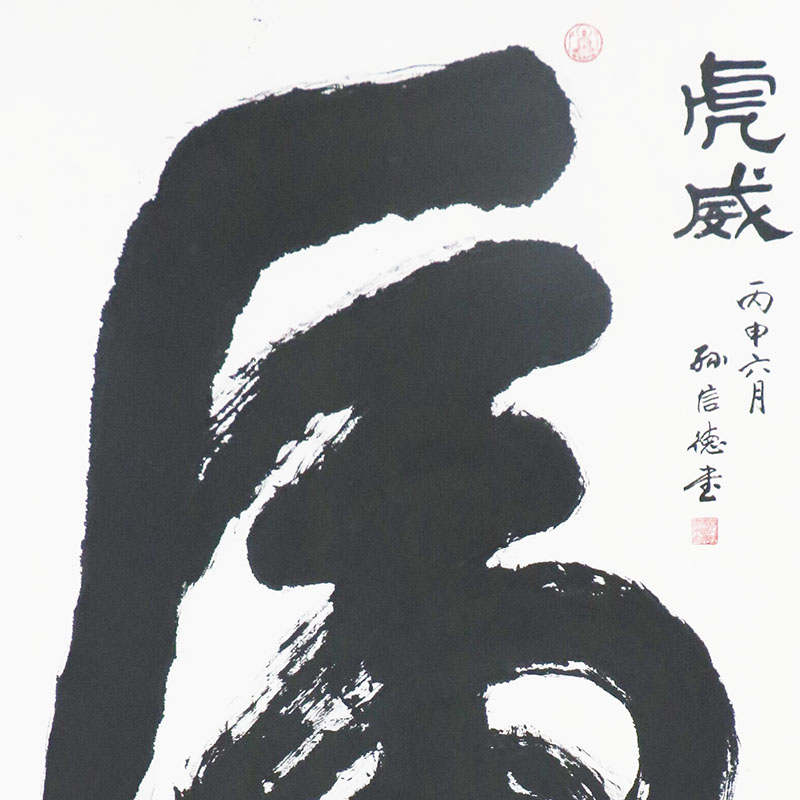 虎
虎威
丙申六月
孙信德书